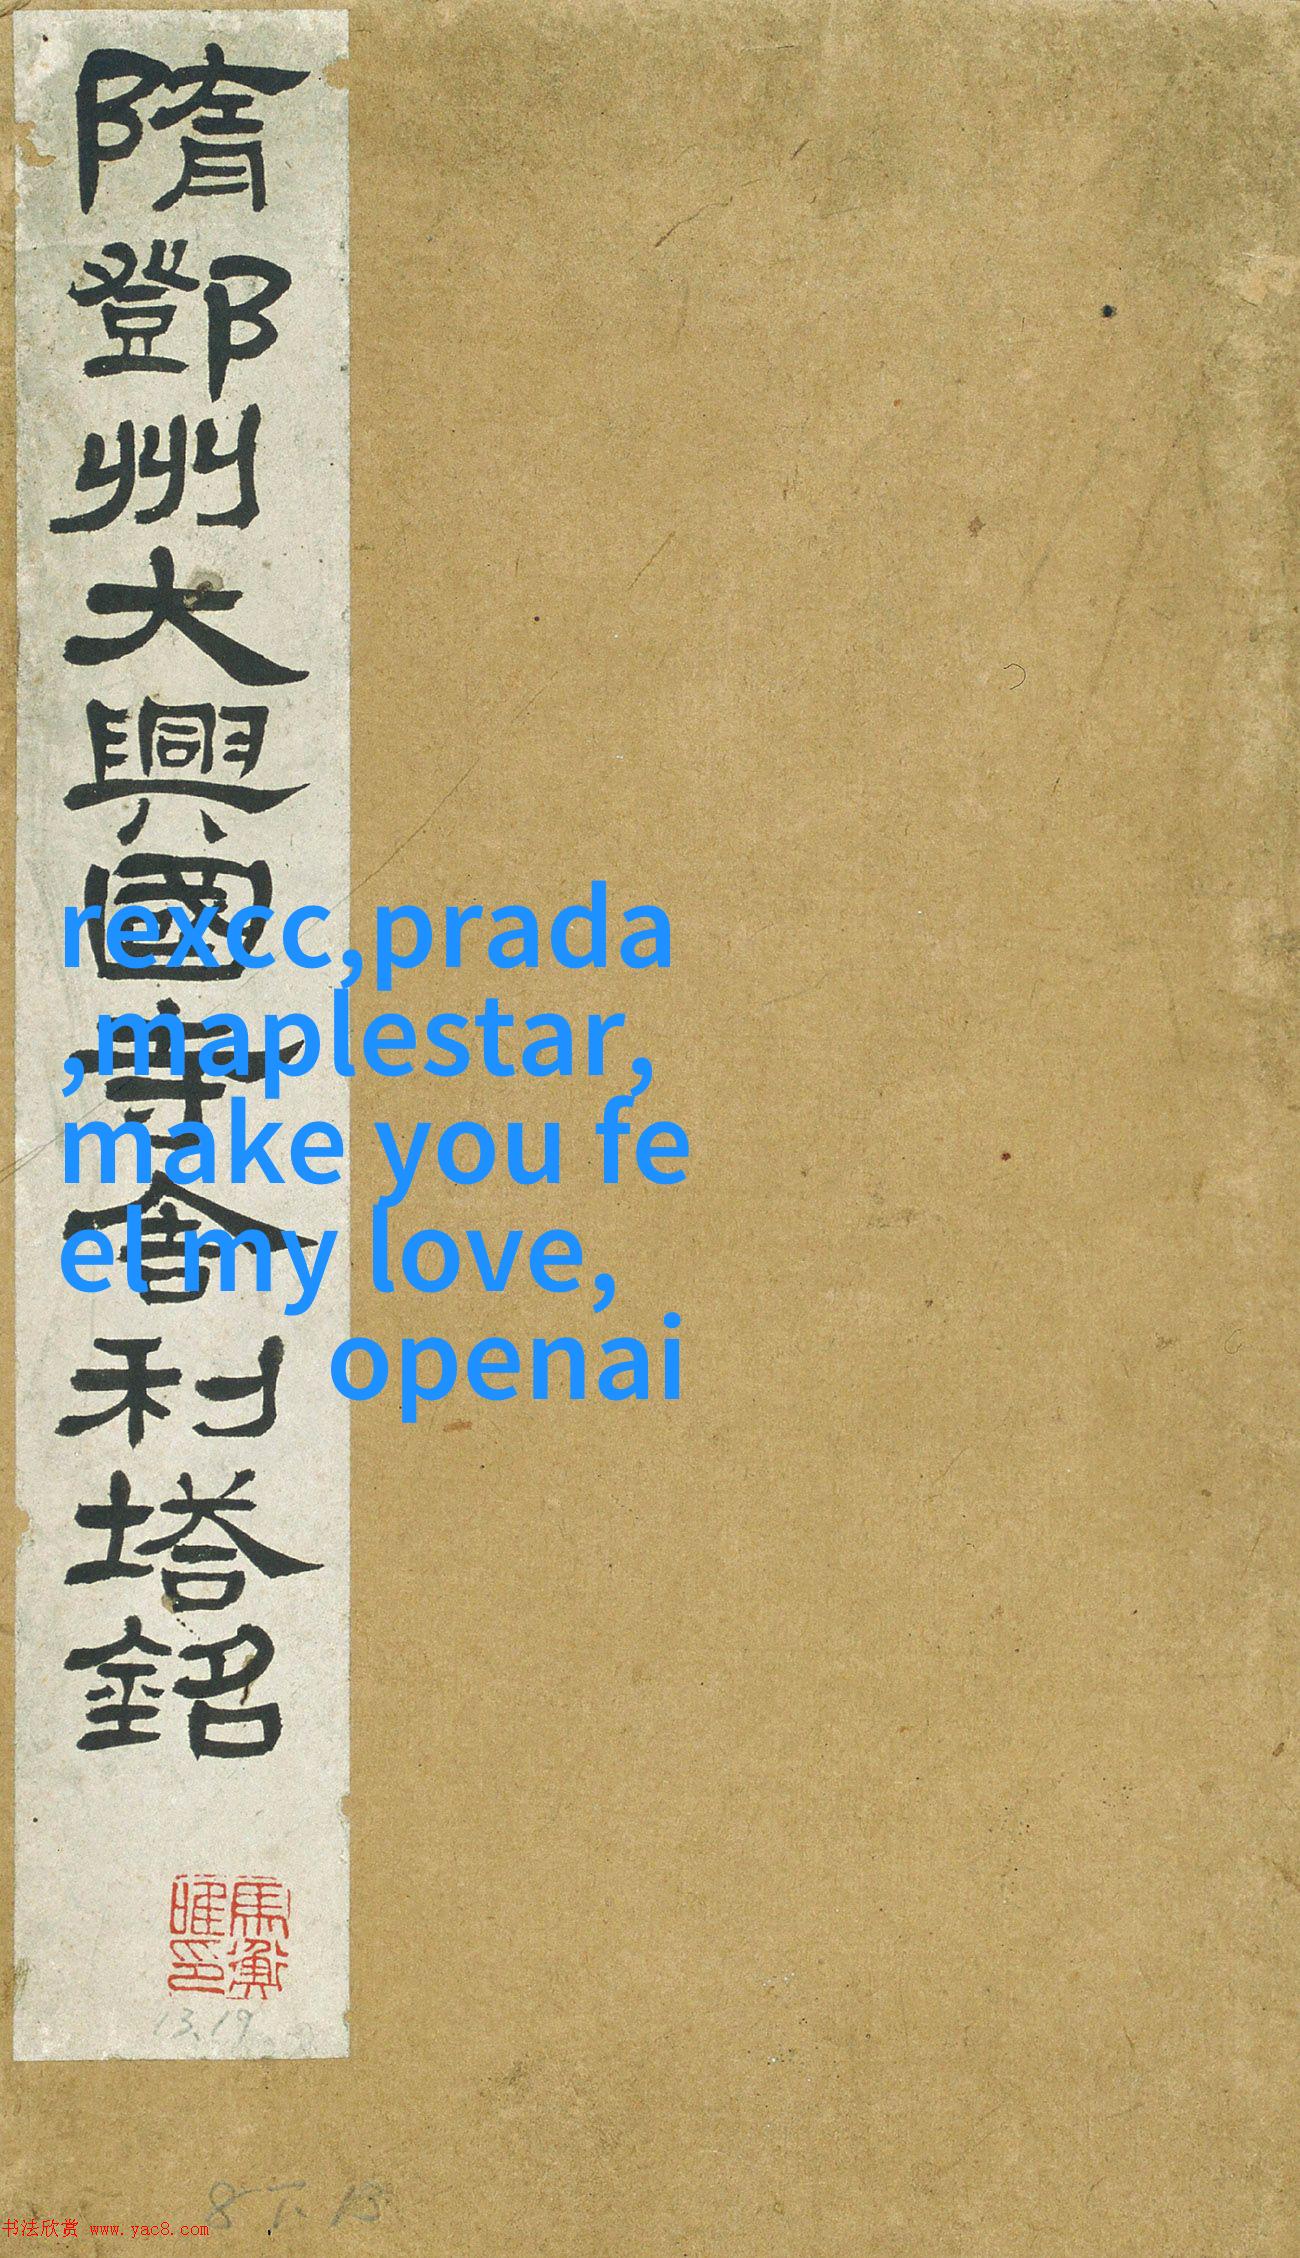 隋鄧州大興國寺舍利塔銘
rexcc,prada
,maplestar,
make you fe
el my love,
openai
馬衡
暀印
13.19
8下13
书法欣赏 www.yac8.com